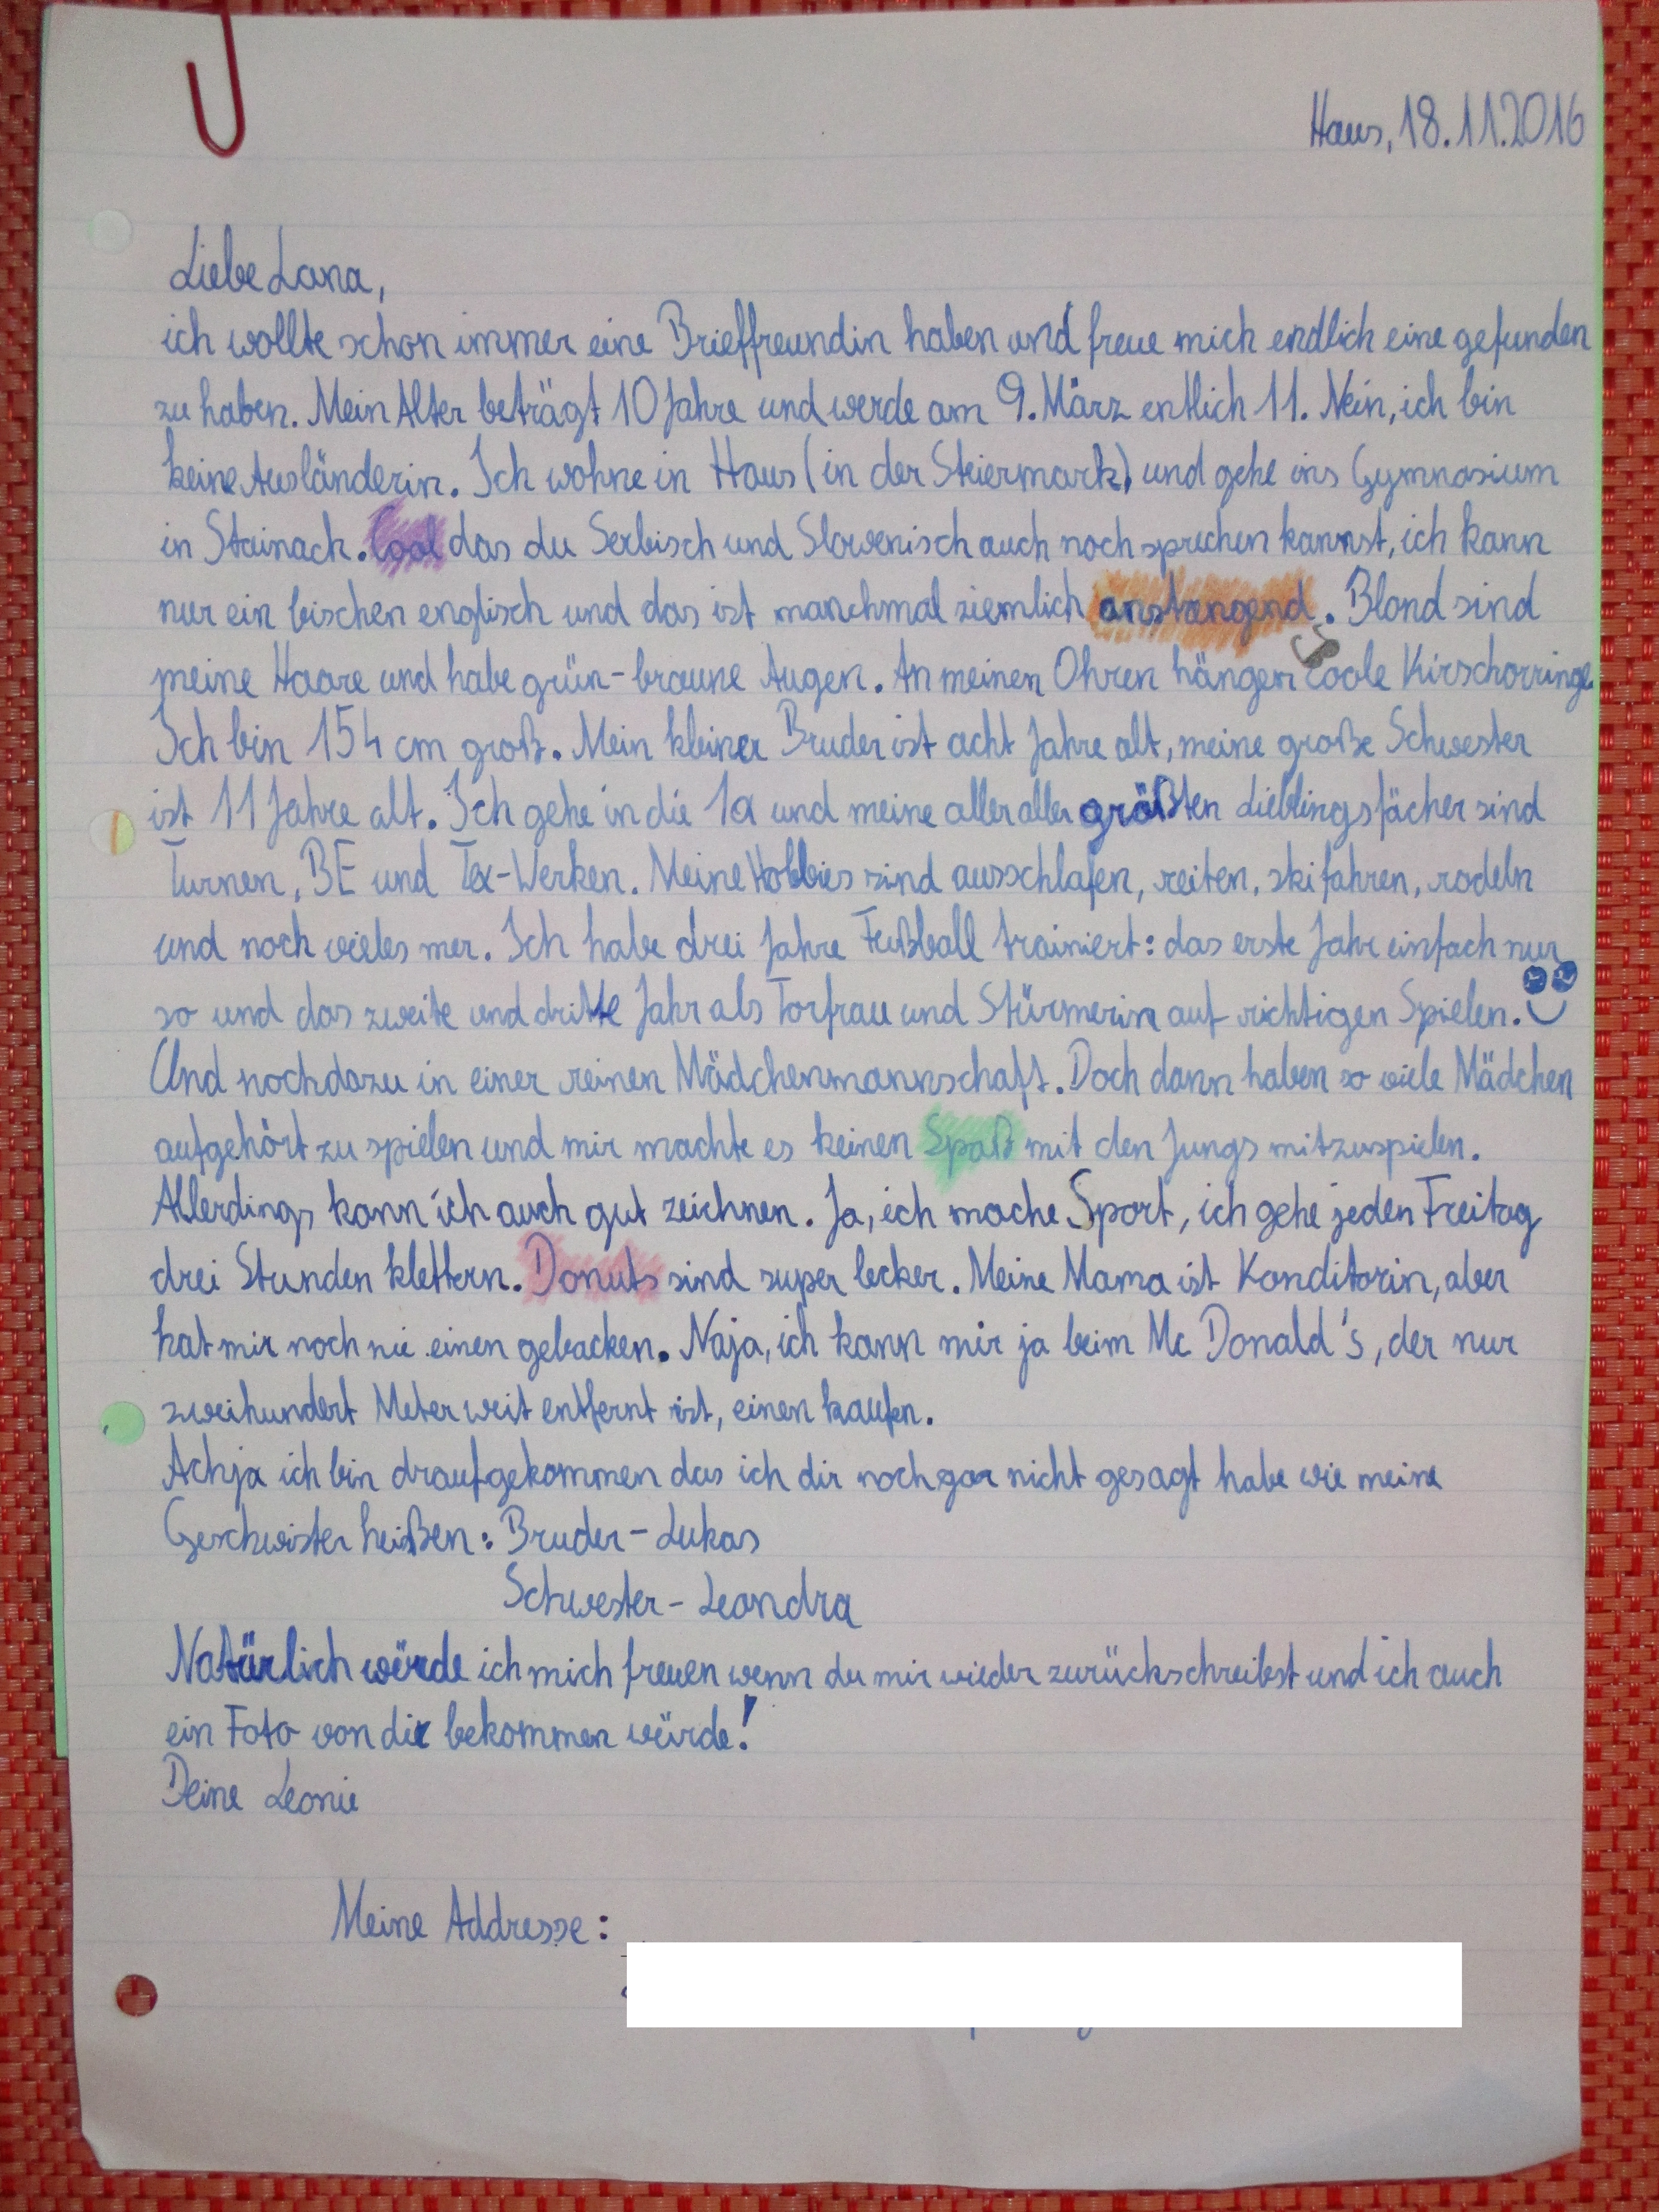 Haus, 18.11.2016
Liebe Lana,
ich wollte schon immer eine Brieffreundin haben und freue mich endlich eine gefunden
zu haben. Mein Alter beträgt 10 Jahre und werde am 9. März entlich 11. Nein, ich bin
keine Ausländerin. Ich wohne in Haus (in der Steiermark) und gehe ins Gymnasium
in Stainach. Cool das du Serbisch und Slowenisch auch noch sprechen kannst, ich kann
nur ein bischen englisch und das ist manchmal ziemlich anstrengend. Blond sind
meine Haare und habe grün-braune Augen. An meinen Ohren hängen coole Kirschorringe
Ich bin 154 cm groß. Mein kleiner Bruder ist acht Jahre alt, meine große Schwester
ist 11 Jahre alt. Ich gehe in die 1a und meine aller aller größten Lieblingsfächer sind
Turnen, BE und Tex-Werken. Meine Hobbies sind ausschlafen, reiten, skifahren, rodeln
und noch vieles mer. Ich habe drei Jahre Fußball trainiert: das erste Jahr einfach nur
so und das zweite und dritte Jahr als Torfrau und Stürmerin auf richtigen Spielen.
Und noch dazu in einer reinen Mädchenmannschaft. Doch dann haben so viele Mädchen
aufgehört zu spielen und mir machte es keinen Spaß mit den Jungs mitzuspielen.
Allerdings kann ich auch gut zeichnen. Ja, ich mache Sport, ich gehe jeden Freitag
drei Stunden klettern. Donuts sind super lecker. Meine Mama ist Konditorin, aber
hat mir noch nie einen gebacken. Naja, ich kann mir ja beim Mc Donald's, der nur
zweihundert Meter weit entfernt ist, einen kaufen.
Achja ich bin draufgekommen das ich dir noch gar nicht gesagt habe wie meine
Geschwister heißen: Bruder - Lukas
Schwester - Leandra
Natürlich würde ich mich freuen wenn du mir wieder zurückschreibst und ich auch
ein Foto von dir bekommen würde!
Deine Leonie
Meine Addresse: